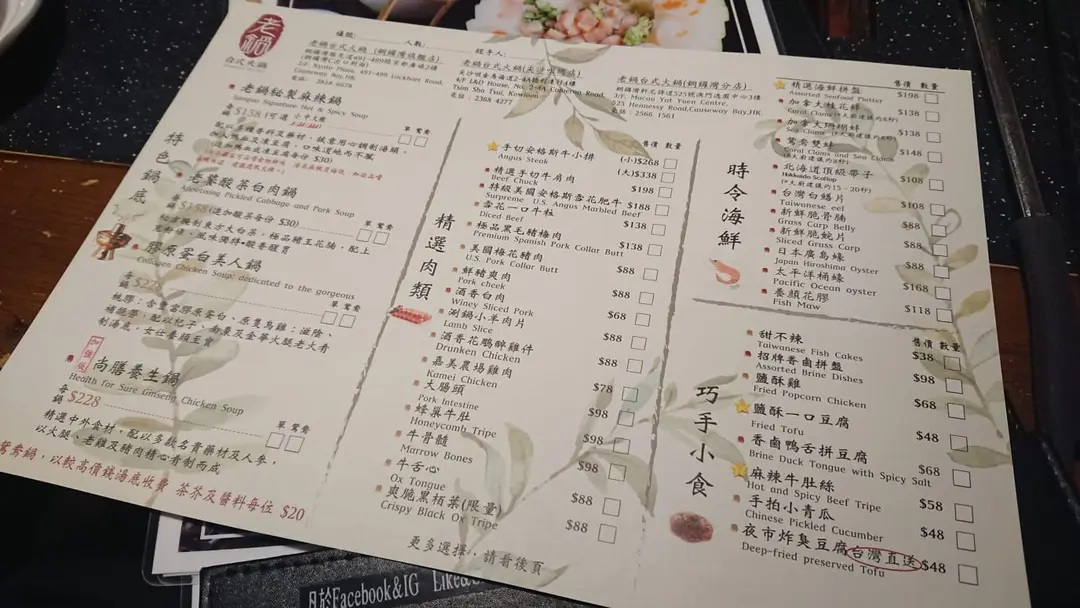 老鍋
台式火鍋
檯號: 人數: 經手人:
老鍋台式火鍋 (銅鑼灣旗艦店)
2/F, Kyoto Plaza, 491-499 Lockhart Road,
Causeway Bay,HK
電話: 2818 8078
老鍋台式火鍋(尖沙咀總店)
4/F L&D House, No. 2-4A Cameron Road,
Tsim Sha Tsui, Kowloon
電話: 2368 4277
老鍋台式火鍋(銅鑼灣分店)
銅鑼灣軒尼詩道525號澳門逸園中心3樓
3/F, Macau Yat Yuen Centre,
525 Hennessy Road,Causeway Bay,HK
電話: 2566 1561
特色鍋底
老鍋秘製麻辣鍋
Unique Signature Hot & Spicy Soup
每鍋$158 (可選 小中大辣)
單 鴛鴦
老菜酸菜白肉鍋
Appetizing Pickled Cabbage and Pork Soup
每鍋$158(追加酸菜每份 $30)
單 鴛鴦
膠原蛋白美人鍋
Collagen Chicken Soup: dedicated to the gorgeous
單 鴛鴦
加強版
尚膳養生鍋
Health for Sure Ginseng Chicken Soup
每鍋 $228
單 鴛鴦
精選中外食材,配以多款名貴藥材及人參,
以火腿、老雞及豬肉精心肴制而成
鴛鴦鍋,以較高價錢湯底收費 茶芥及醬料每位 $20
精選肉類
售價 數量
手切安格斯牛小排 (小)$268
Angus Steak (大)$338
精選手切牛肩肉 $198
Beef Chuck
特級美國安格斯雪花肥牛 $188
Surpreme U.S. Angus Marbled Beef
雪花一口牛粒 $138
Diced Beef
極品黑毛豬梅肉 $138
Premium Spanish Pork Collar Butt
美國梅花豬肉 $88
U.S. Pork Collar Butt
鮮豬爽肉 $88
Pork cheek
酒香白肉 $68
Winey Sliced Pork
涮鍋小羊肉片 $88
Lamb Slice
酒香花鵰醉雞件 $88
Drunken Chicken
嘉美農場雞肉 $78
Kamei Chicken
大腸頭 $98
Pork Intestine
蜂巢牛肚 $98
Honeycomb Tripe
牛骨髓 $98
Marrow Bones
牛舌心 $88
Ox Tongue
爽脆黑栢葉(限量) $88
Crispy Black Ox Tripe
更多選擇,請看後頁
時令海鮮
售價 數量
精選海鮮拼盤 $198
Assorted Seafood Platter
加拿大桂花蚌 $138
加拿大珊瑚蚌 $138
鴛鴦雙蚌 $148
Coral Clams and Sea Clams
北海道頂級帶子 $108
Hokkaido Scallop
台灣白鱔片 $88
Taiwanese eel
新鮮脆骨腩 $88
Grass Carp Belly
新鮮脆鯇片 $88
Sliced Grass Carp
日本廣島蠔 $88
Japan Hiroshima Oyster
太平洋桶蠔 $168
Pacific Ocean oyster
養顏花膠 $118
Fish Maw
巧手小食
售價 數量
甜不辣 $38
Taiwanese Fish Cakes
招牌香鹵拼盤 $98
Assorted Brine Dishes
鹽酥雞 $68
Fried Popcorn Chicken
鹽酥一口豆腐 $48
Fried Tofu
香鹵鴨舌拼豆腐 $68
Brine Duck Tongue with Spicy Salt
麻辣牛肚絲 $58
Hot and Spicy Beef Tripe
手拍小青瓜 $48
Chinese Pickled Cucumber
夜市炸臭豆腐 台灣直送 $48
Deep-fried preserved Tofu
於Facebook&IG Like&